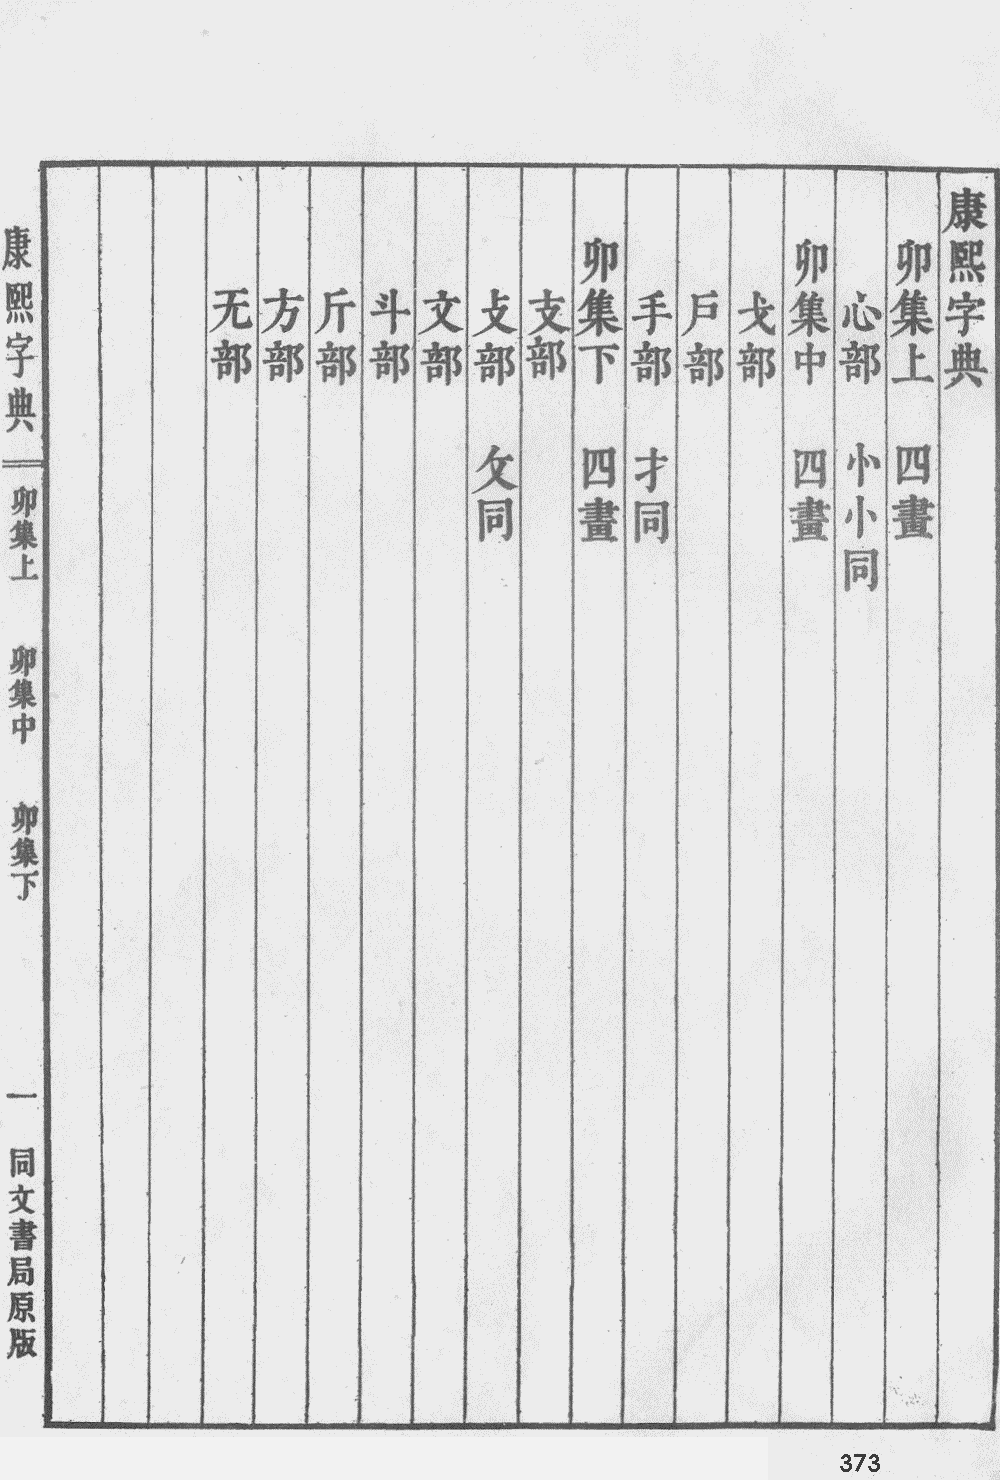 康熙字典
卯集上 四畫
心部 忄⺗同
卯集中 四畫
戈部
戶部
手部 扌同
卯集下 四畫
支部
攴部 攵同
文部
斗部
斤部
方部
无部
康熙字典 卯集上 卯集中 卯集下 一 同文書局原版
373